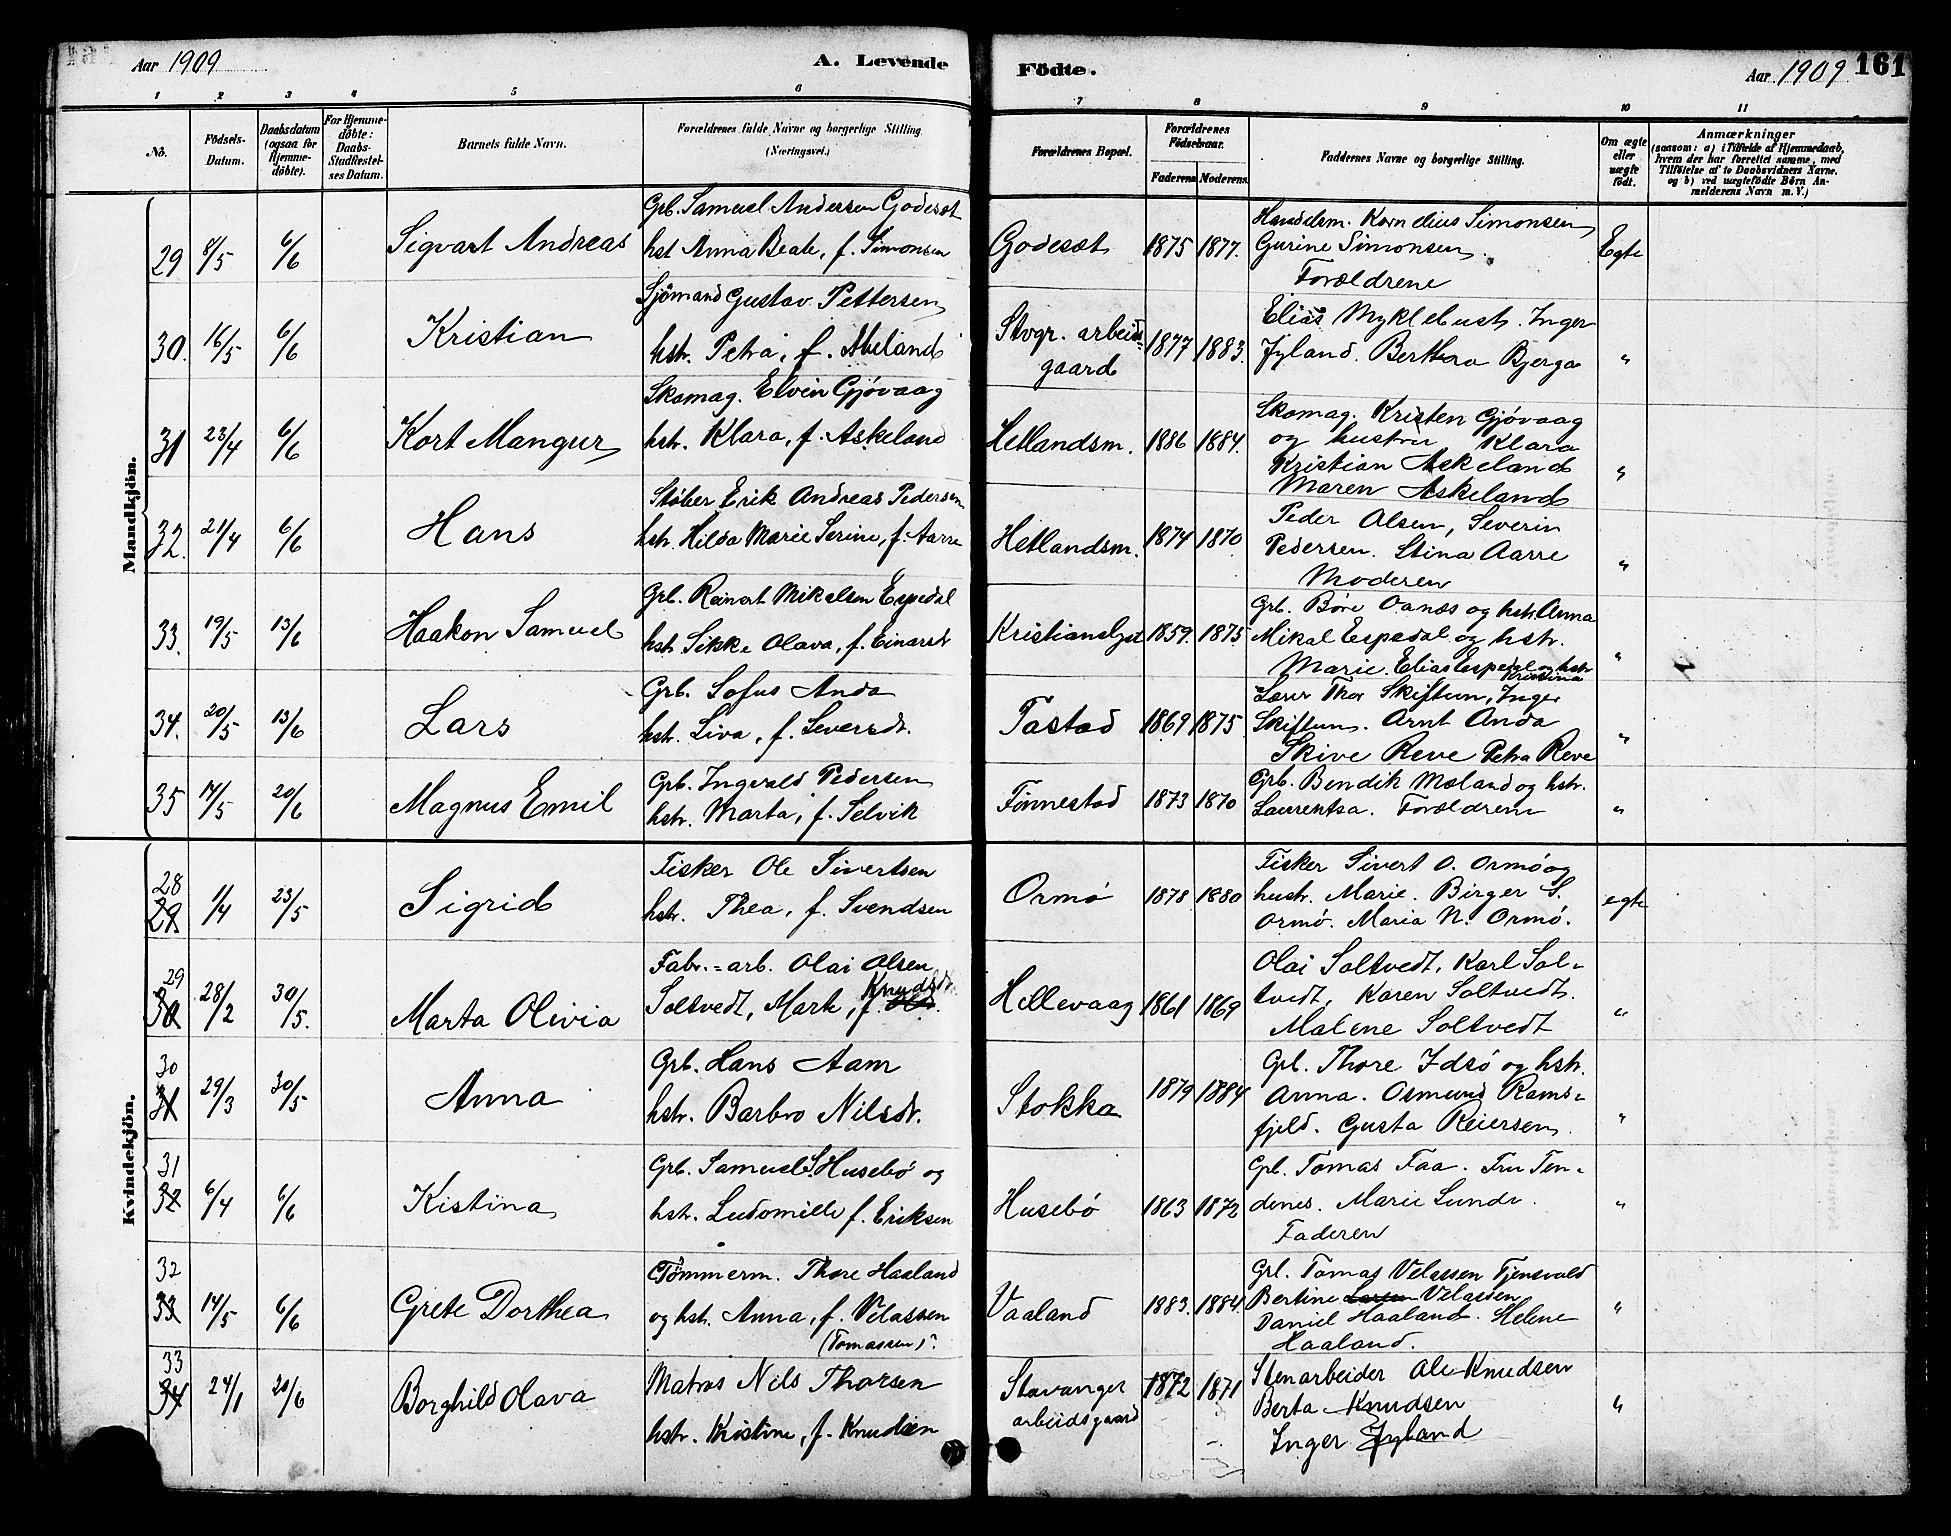 Aar 1909
A. Levende
Födte.
Aar 1909
161
1 2 3 4 5 6 7 8 9 10 11
No.
Födsels-Datum.
Daabsdatum (ogsaa for Hjemmedöbte).
For Hjemmedöbte: Daabs-Stadfæstelses Datum.
Barnets fulde Navn.
Forældrenes fulde Navne og borgerlige Stilling (Næringsvei.)
Forældrenes Bopæl.
Forældrenes Födselsaar.
Faderens Moderens.
Faddernes Navne og borgerlige Stilling.
Om ægte eller uægte födt.
Anmærkninger
(saasom: a) i Tilfælde af Hjemmedaab, hvem der har forrettet samme, med Tilföielse af to Daabsvidners Navne, og b) ved uægtefödte Börn Anmelderens Navn m. V.)
Mandkjön.
Grb. Samuel Andersen Godeset
29 8/5 6/6 Sigvart Andreas hst Anna Beate, f. Simonsen
Godeset 1875 1877.
Handelsm. Kornelius Simonsen
Gurine Simonsen
Forældrene
Egte
Sjömand Gustav Pettersen
30. 16/5 6/6 Kristian hstr. Petra, f.
Stvgr. arbeids-
gaard 1877 1883.
Elias Myklebust. Inger
Jyland. Berthea Bjerga "
Skomag. Elvin Gjövaag
31 23/4 6/6 Kort Mangur hstr. Klara, f. Askeland
Hetlandsm. 1886 1884.
Skomag. Kristen Gjövaag
og hustru Klara
Kristian Askeland
Maren Askeland "
Støber Erik Andreas Pedersen
32. 21/4 6/6 Hans hstr. Hilda Marie Serine, f. Aarre
Hetlandsm. 1874 1870
Peder Olsen, Severin
Pedersen. Stina Aarre
Moderen "
Grb. Reinert Mikalsen Espedal
33. 19/5 13/6 Haakon Samuel hst. Sikke Olava, f. Einarsd.
Kristianslyst 1859. 1875
Grb. Böre Oanæs og hstr. Anna
Mikal Espedal og hstr.
Marie. Elias Espedal og hstr
Kristina "
Grb. Sofus Anda
34. 20/5 13/6 Lars hstr. Siva, f. Seversdr.
Tastad 1869 1875
Lærer Thor Skiftun, Inger
Skiftun. Arnt Anda
Skive Reve Petra Reve "
Grb. Ingvald Pedersen
35 14/5 20/6 Magnus Emil hstr. Marta, f. Selvik
Finnestad 1873 1870
Grb. Bendik Mæland og hstr.
Laurentsa. Forældrene "
Kvindekjön.
28
29 1/4 23/5 Sigrid
Fisker Ole Sivertsen
hstr. Thea, f. Svendsen
Ormö 1878 1880
Fisker Sivert O. Ormö og
hustr. Marie. Birger S.
Ormö. Maria N. Ormö.
egte
29
30 28/2 30/5. Marta Olivia
Fabr.-arb. Olai Olsen
Soltvedt, Mart, f. Knudsdr.
Hillevaag 1861 1869
Olai Soltvedt, Karl Sol-
tvedt, Karen Soltvedt.
Malene Soltvedt "
30
31 29/3 30/5 Anna
Grb. Hans Aam
hstr. Barbro Nilsdr.
Stokka 1879 1884
Gpl. Thore Idsö og hstr.
Anna. Osmund Rams-
fjeld. Gusta Reiersen "
31
32 6/4 6/6 Kistina
Grb. Samuel S. Husebö og
hstr. Ludomille f. Eriksen
Husebö 1863 1872
Gpl. Tomas Faa. Fru Ten-
denes. Marie Lunde.
Faderen "
32
33 14/5 6/6 Grete Dorthea
Tömmerm. Thore Haaland
og hst. Anna, f. Velassen
(Tomassen)?
Vaaland 1883. 1884.
Grl. Tomas Velassen Tjensvold
Bertine Velassen
Daniel Haaland. Helene
Haaland. "
33
34 24/1 20/6 Borghild Olava
Matros Nils Thorsen
hstr. Kristine, f. Knudsen
Stavanger
arbeidsgaard 1872 1871
Stenarbeider Ole Knudsen
Berta Knudsen
Inger Jyland "